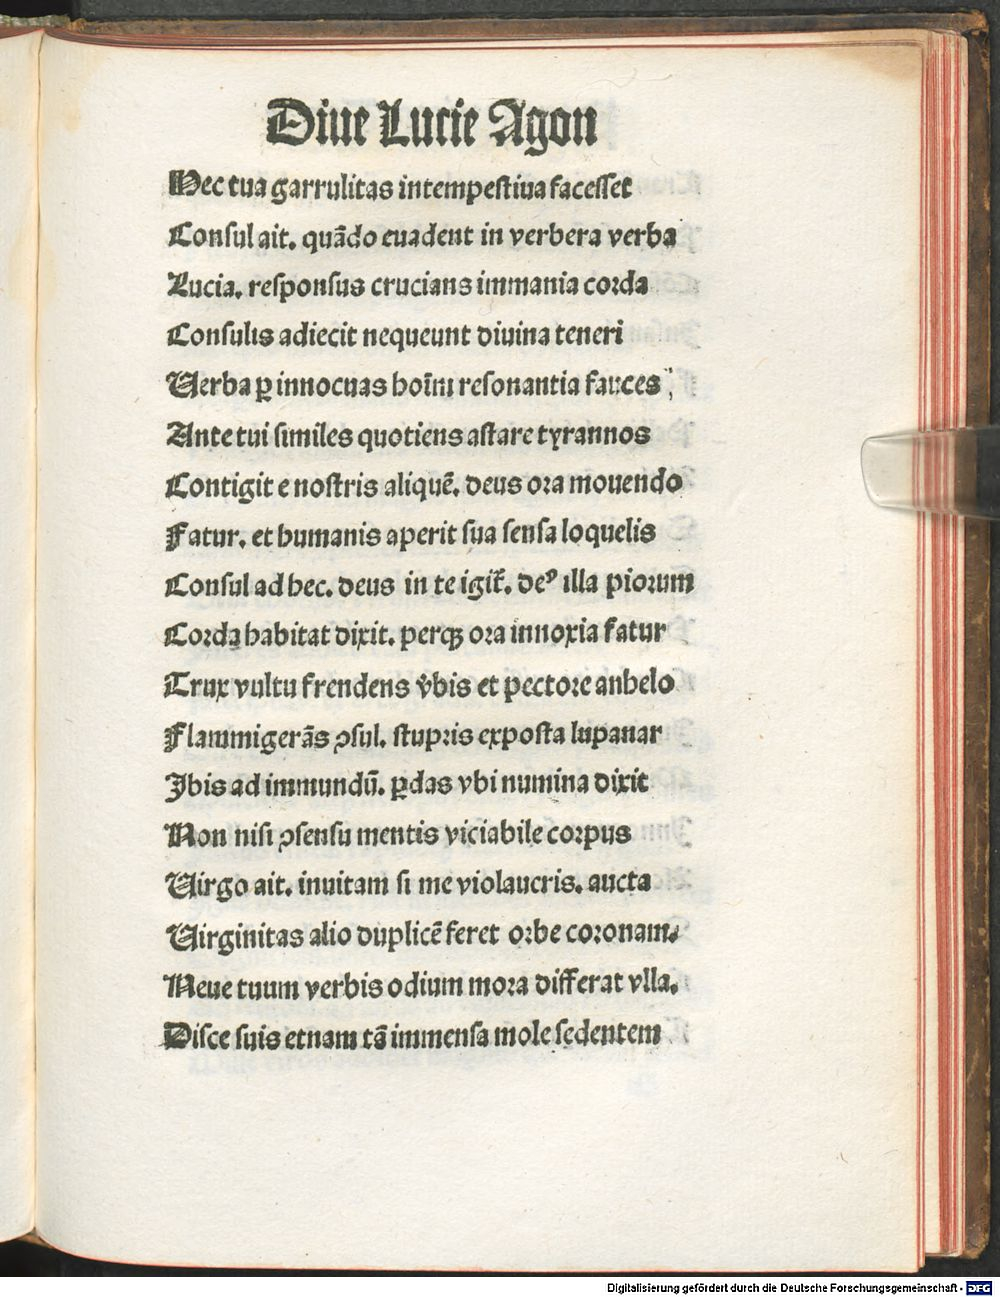 Diue Lucie Agon
Hec tua garrulitas intempestiua facesset
Consul ait. quādo euadent in verbera verba
Lucia. responsus crucians immania corda
Consulis adiecit nequeunt diuina teneri
Verba ꝑ innocuas hoīm resonantia fauces
Ante tui similes quotiens astare tyrannos
Contigit e nostris aliquē. deus ora mouendo
Fatur. et humanis aperit sua sensa loquelis
Consul ad hec. deus in te igit̃. deꝰ illa piorum
Corda habitat dixit. perqꝫ ora innoxia fatur
Trux vultu frendens v̾bis et pectore anhelo
Flammigerās ꝯsul. stupris exposta lupanar
Ibis ad immundū. ꝑdas vbi numina dixit
Non nisi ꝯsensu mentis viciabile corpus
Virgo ait. inuitam si me violaueris. aucta
Virginitas alio duplicē feret orbe coronam.
Neue tuum verbis odium mora differat vlla.
Disce suis etnam tā immensa mole sedentem
Digitalisierung gefördert durch die Deutsche Forschungsgemeinschaft - DFG